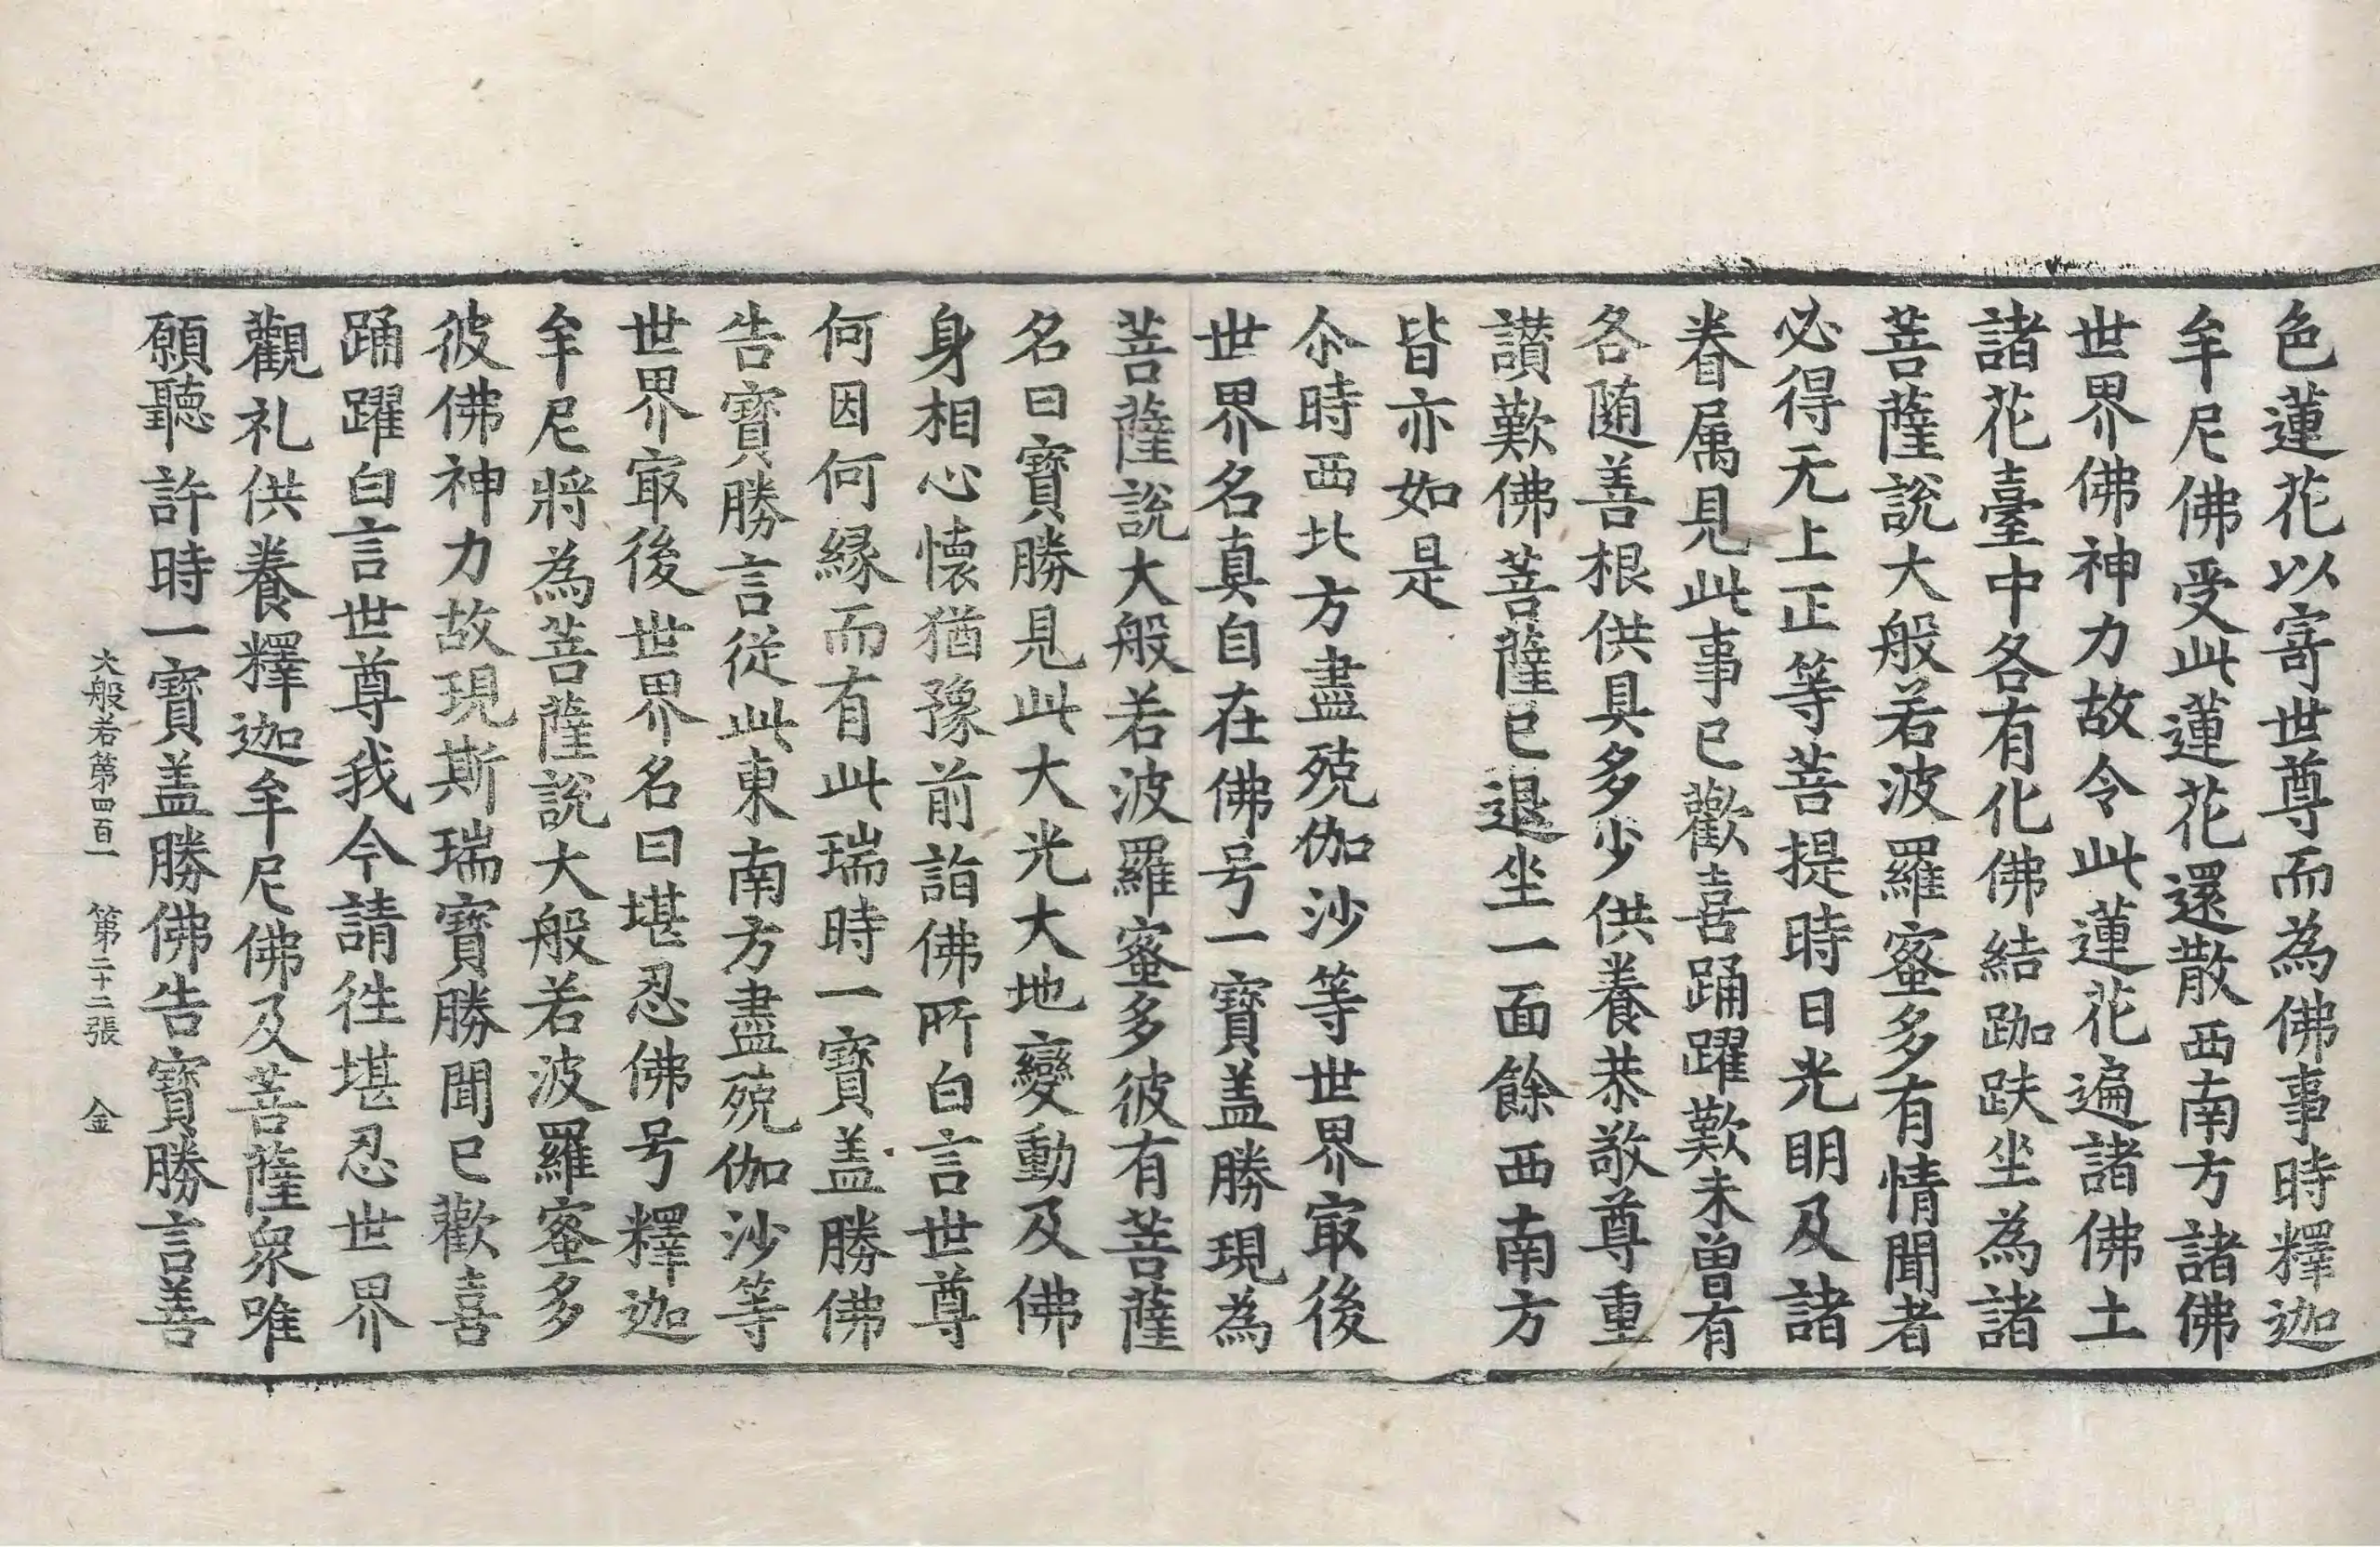 色蓮花以寄世尊而為佛事時釋迦
牟尼佛受此蓮花還散西南方諸佛
世界佛神力故令此蓮花遍諸佛土
諸花臺中各有化佛結跏趺坐為諸
菩薩說大般若波羅蜜多有情聞者
必得无上正等菩提時日光明及諸
眷属見此事已歡喜踊躍歎未曾有
各随善根供具多少供養恭敬尊重
讃歎佛菩薩已退坐一面餘西南方
皆亦如是
尒時西北方盡殑伽沙等世界㝡後
世界名真自在佛号一寶盖勝現為
菩薩說大般若波羅蜜多彼有菩薩
名曰寶勝見此大光大地變動及佛
身相心懷猶豫前詣佛所白言世尊
何因何縁而有此瑞時一寶盖勝佛
告寶勝言從此東南方盡殑伽沙等
世界㝡後世界名曰堪忍佛号釋迦
牟尼將為菩薩說大般若波羅蜜多
彼佛神力故現斯瑞寶勝聞已歡喜
踊躍白言世尊我今請徃堪忍世界
觀礼供養釋迦牟尼佛及菩薩衆唯
願聽許時一寶盖勝佛告寶勝言善
大般若第四百一　第二十二張　金